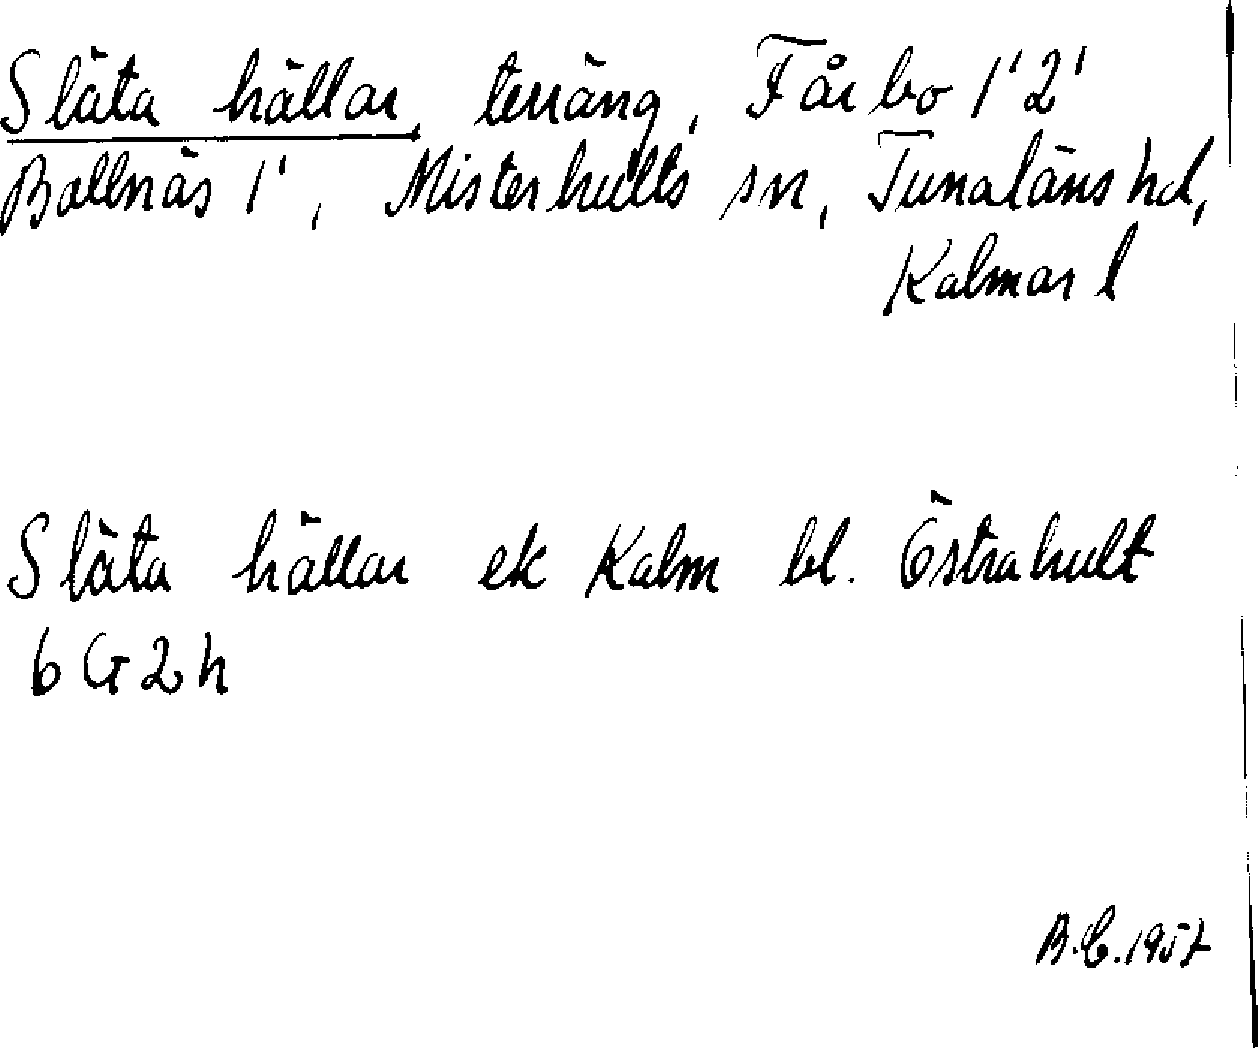 Släta hällar, terräng, Fårbo 1' 2'
Ballnäs 1', Misterhults sn, Tunaläns hd,
Kalmar l
Släta hällar ek Kalm bl. Östrahult
6 G 2 h
B.C. 1957